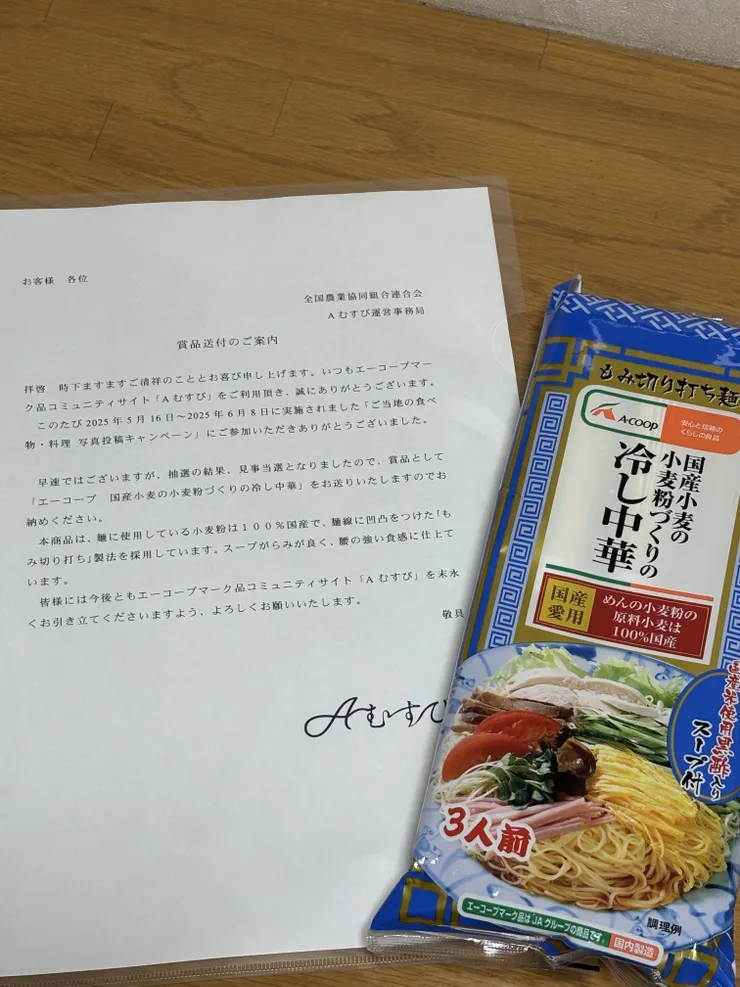 お客様　各位
全国農業協同組合連合会
Aむすび運営事務局
賞品送付のご案内
拝啓　時下ますますご清祥のこととお喜び申し上げます。いつもエーコープマー
ク品コミュニティサイト「Aむすび」をご利用頂き、誠にありがとうございます。
このたび2025年5月16日～2025年6月8日に実施されました「ご当地の食べ
物・料理 写真投稿キャンペーン」にご参加いただきありがとうございました。
早速ではございますが、抽選の結果、見事当選となりましたので、賞品として
「エーコープ　国産小麦の小麦粉づくりの冷し中華」をお送りいたしますのでお
納めください。
本商品は、麺に使用している小麦粉は１００％国産で、麺線に凹凸をつけた「も
み切り打ち」製法を採用しています。スープがらみが良く、腰の強い食感に仕上て
います。
皆様には今後ともエーコープマーク品コミュニティサイト「Aむすび」を末永
くお引き立てくださいますよう、よろしくお願いいたします。
敬具
Aむすび
もみ切り打ち麺
A-COOP
安心と信頼の
くらしの良品
国産小麦の
小麦粉づくりの
冷し中華
国産
愛用
めんの小麦粉の
原料小麦は
100%国産
国産米使用黒酢入り
スープ付
3人前
調理例
エーコープマーク品は「JAグループの商品」です。
国内製造